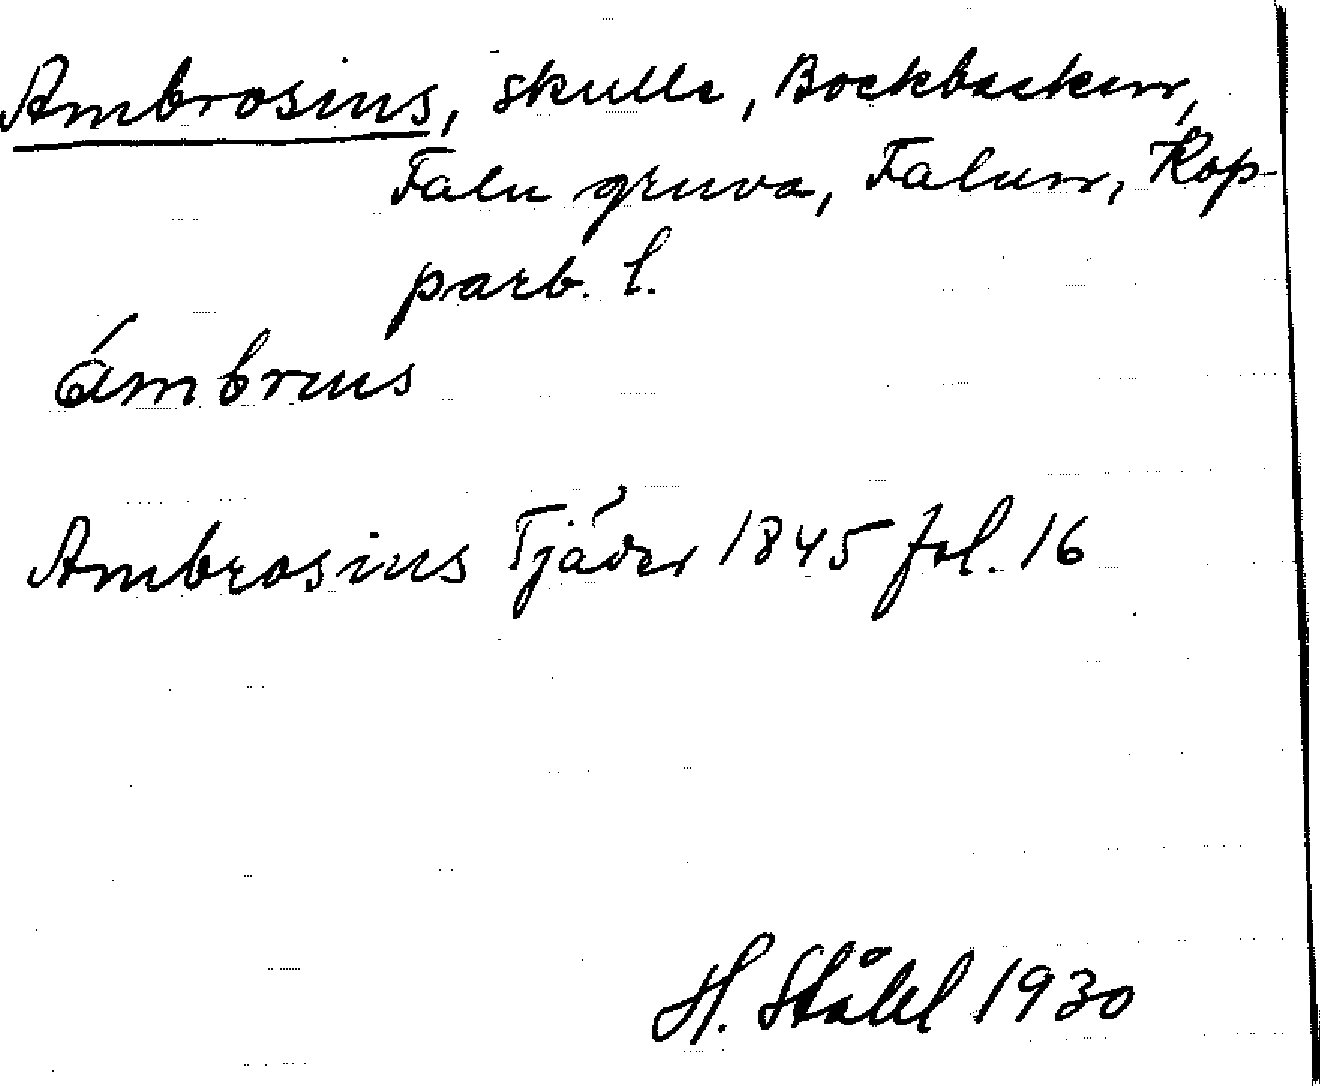 Ambrosius, skulle, Bockbacken,
Falu gruva, Falun, Kop-
parb. l.
ámbrus
Ambrosius Tjäder 1845 fol. 16
H. Ståhl 1930